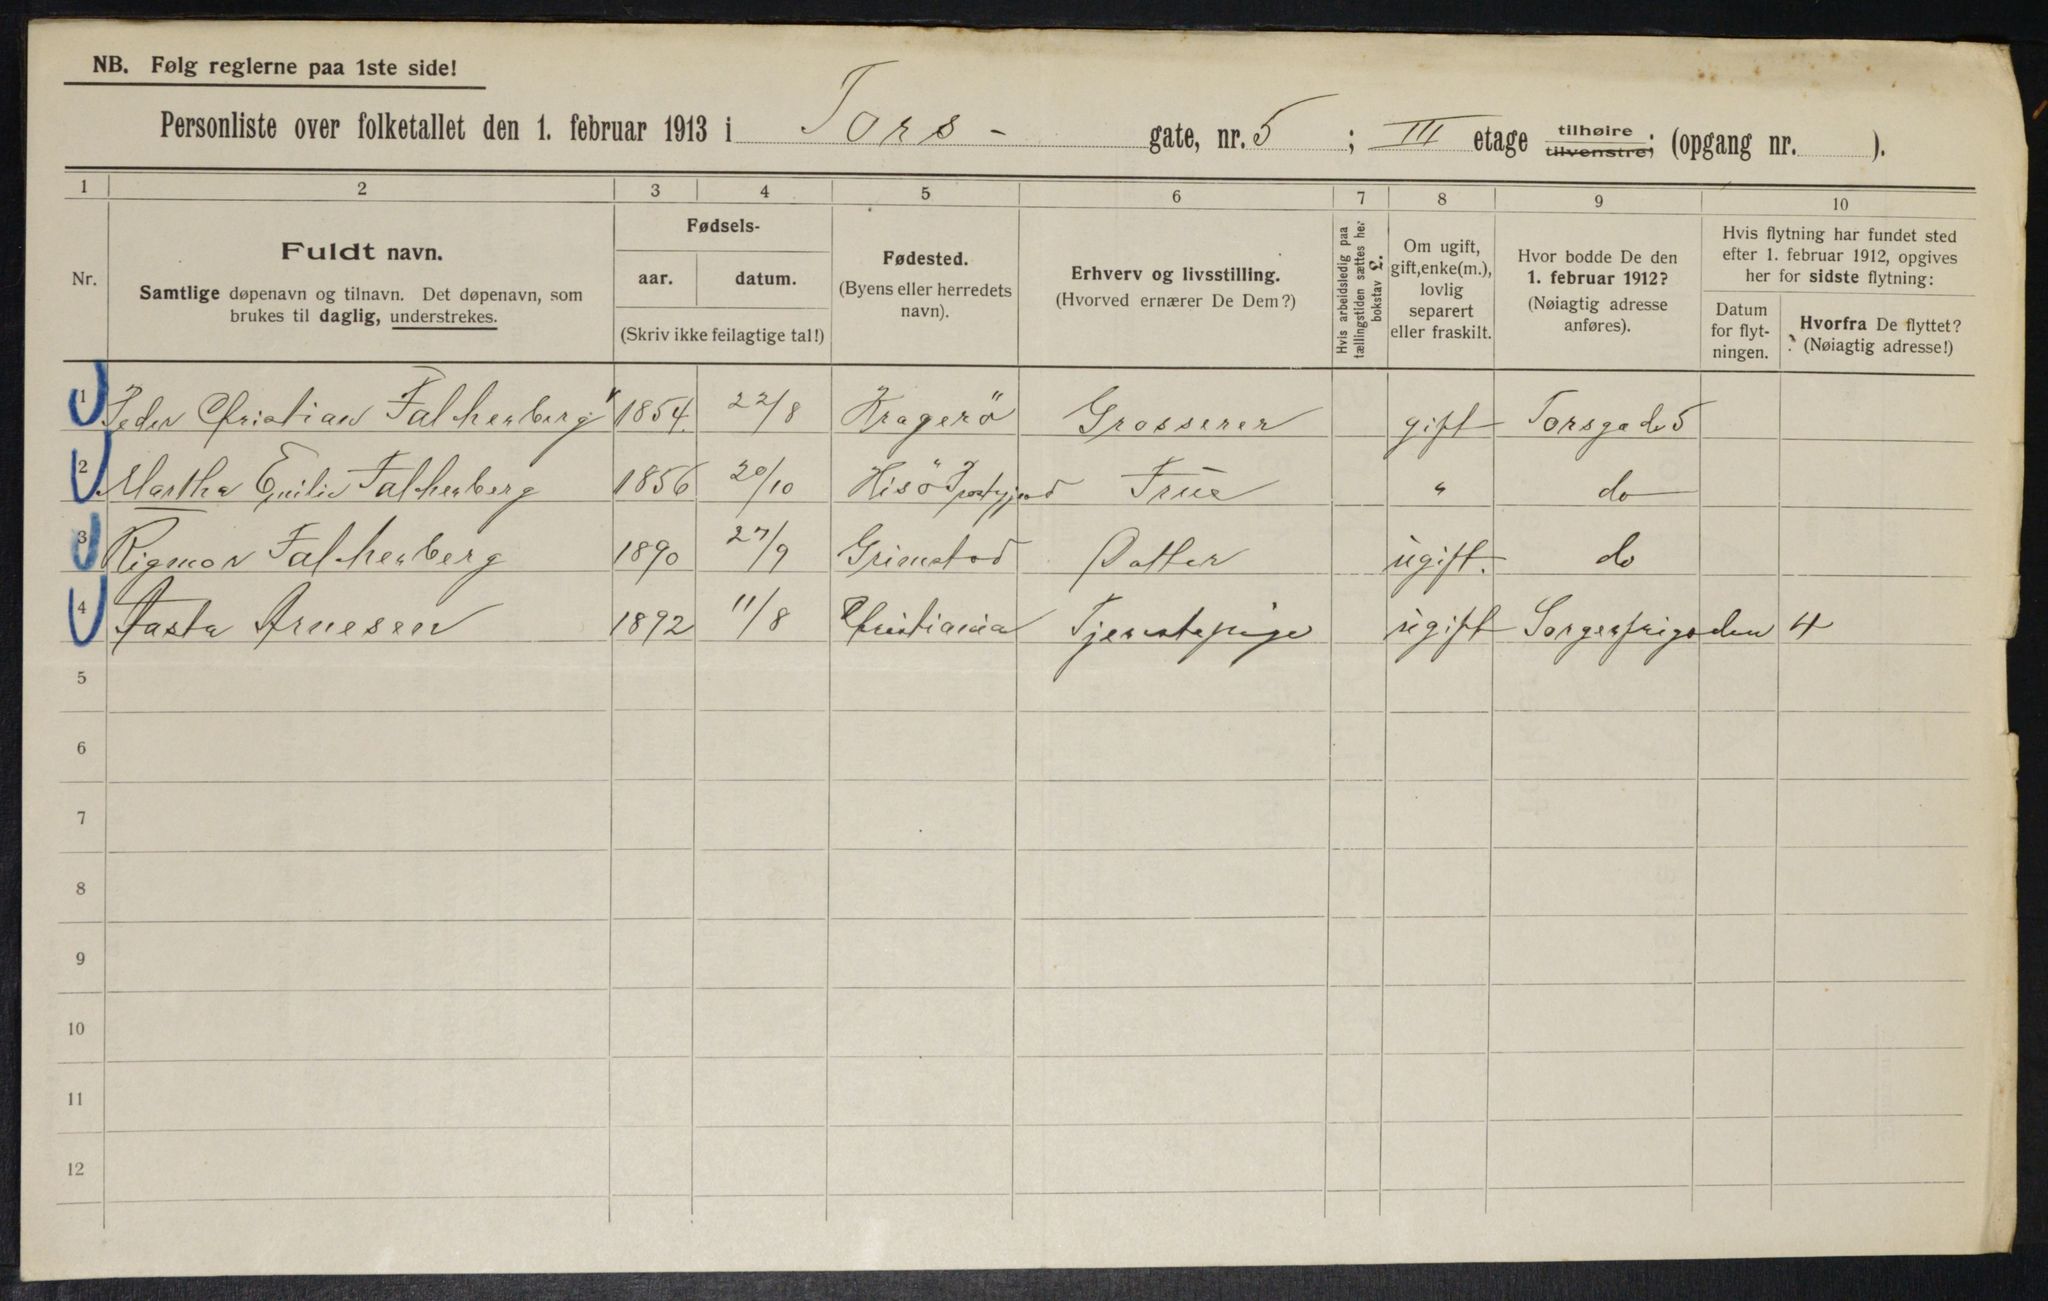 NB. Følg reglerne paa 1ste side!
Personliste over folketallet den 1. februar 1913 i Tors- gate, nr. 5 ; III etage tilhøire tilvenstre; (opgang nr. ).
1 2 3 4 5 6 7 8 9 10
Nr.
Fuldt navn.
Samtlige døpenavn og tilnavn. Det døpenavn, som
brukes til daglig, understrekes.
Fødsels-
aar. datum.
(Skriv ikke feilagtige tal!)
Fødested.
(Byens eller herredets
navn).
Erhverv og livsstilling.
(Hvorved ernærer De Dem?)
Hvis arbeidsledig paa
tællingstiden sættes her
bokstav L.
Om ugift,
gift, enke(m.),
lovlig
separert
eller fraskilt.
Hvor bodde De den
1. februar 1912?
(Nøiagtig adresse
anføres).
Hvis flytning har fundet sted
efter 1. februar 1912, opgives
her for sidste flytning:
Datum
for flyt-
ningen.
Hvorfra De flyttet?
(Nøiagtig adresse!)
1 Peder Christian Falkenberg 1854. 22/8 Kragerö Grosserer gift Torsgade 5
2 Martha Emilie Falkenberg 1856 20/10 Hisö Frue " do
3 Rigmor Falkenberg 1890 27/9 Grimstad Datter ugift. do
4 Aasta Arnesen 1892 11/8 Christiania Tjenestepige ugift Sorgenfrigaden 4
5
6
7
8
9
10
11
12